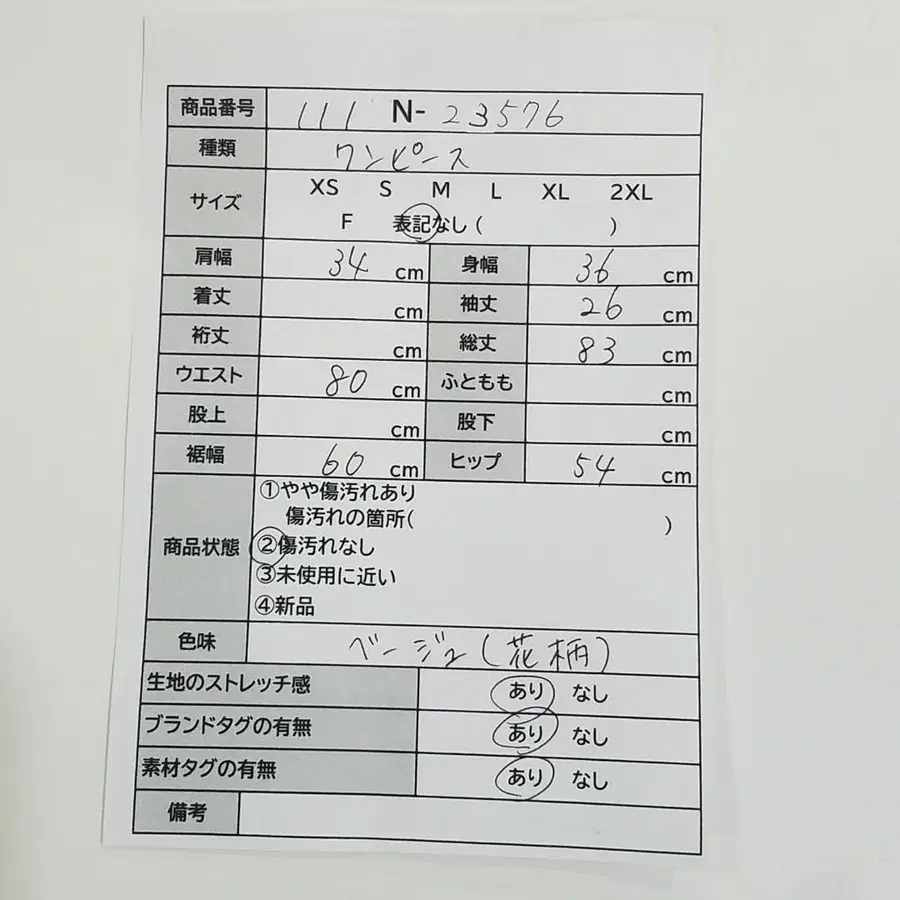 商品番号 111 N- 23576
種類 ワンピース
サイズ XS S M L XL 2XL
F 表記なし( )
肩幅 34 cm 身幅 36 cm
着丈 cm 袖丈 26 cm
裄丈 cm 総丈 83 cm
ウエスト 80 cm ふともも cm
股上 cm 股下 cm
裾幅 60 cm ヒップ 54 cm
商品状態 ①やや傷汚れあり
傷汚れの箇所( )
②傷汚れなし
③未使用に近い
④新品
色味 ベージュ(花柄)
生地のストレッチ感 あり なし
ブランドタグの有無 あり なし
素材タグの有無 あり なし
備考